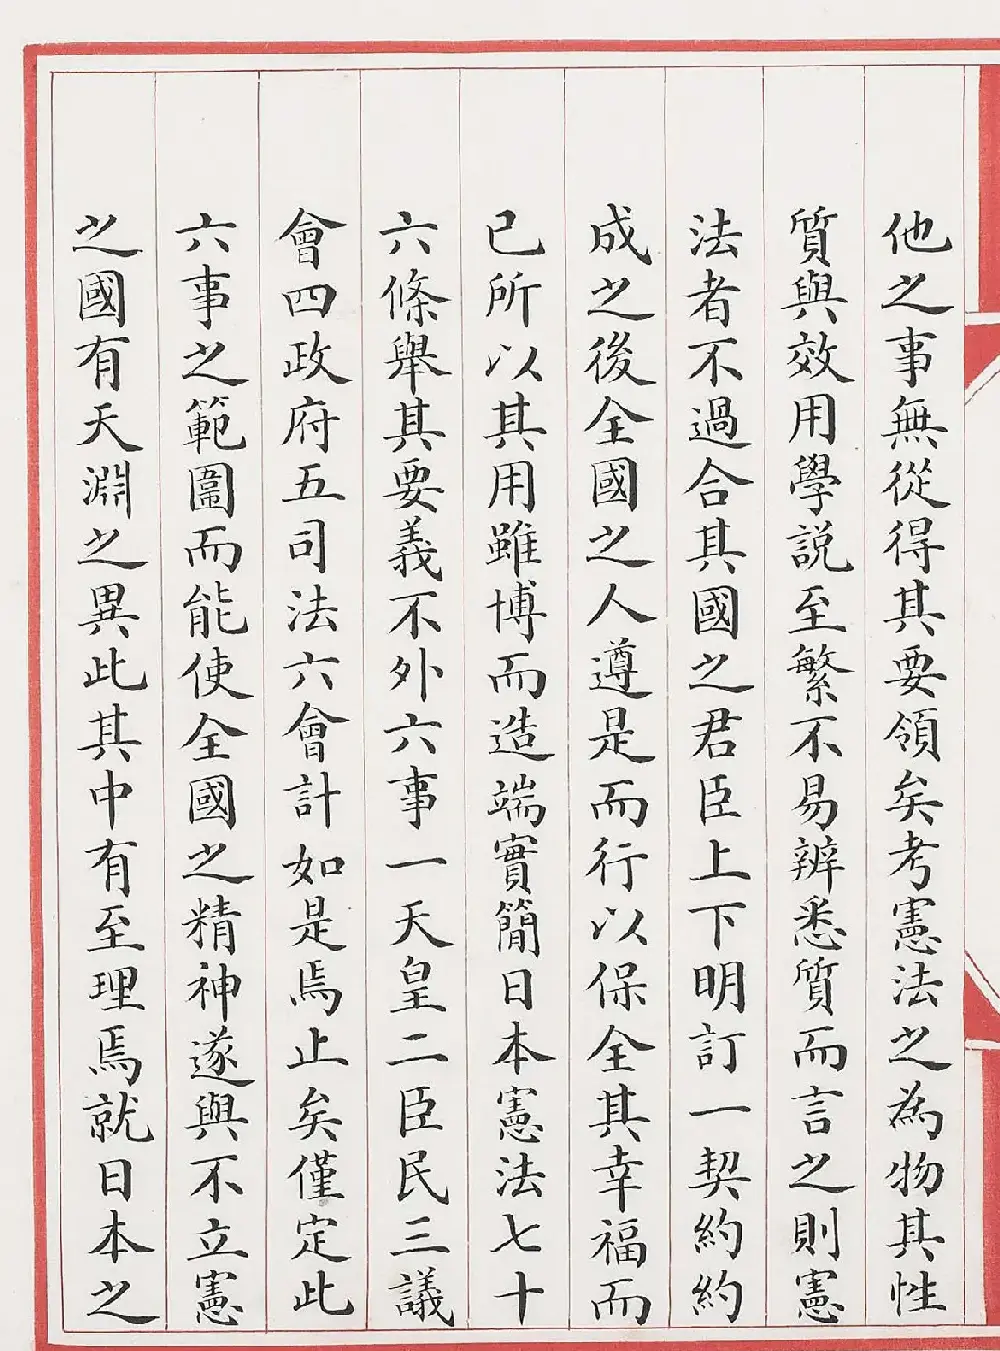 他之事無從得其要領矣考憲法之為物其性
質與效用學説至繁不易辨悉質而言之則憲
法者不過合其國之君臣上下明訂一契約約
成之後全國之人遵是而行以保全其幸福而
已所以其用雖博而造端實簡日本憲法七十
六條舉其要義不外六事一天皇二臣民三議
會四政府五司法六會計如是焉止矣僅定此
六事之範圍而能使全國之精神遂與不立憲
之國有天淵之異此其中有至理焉就日本之